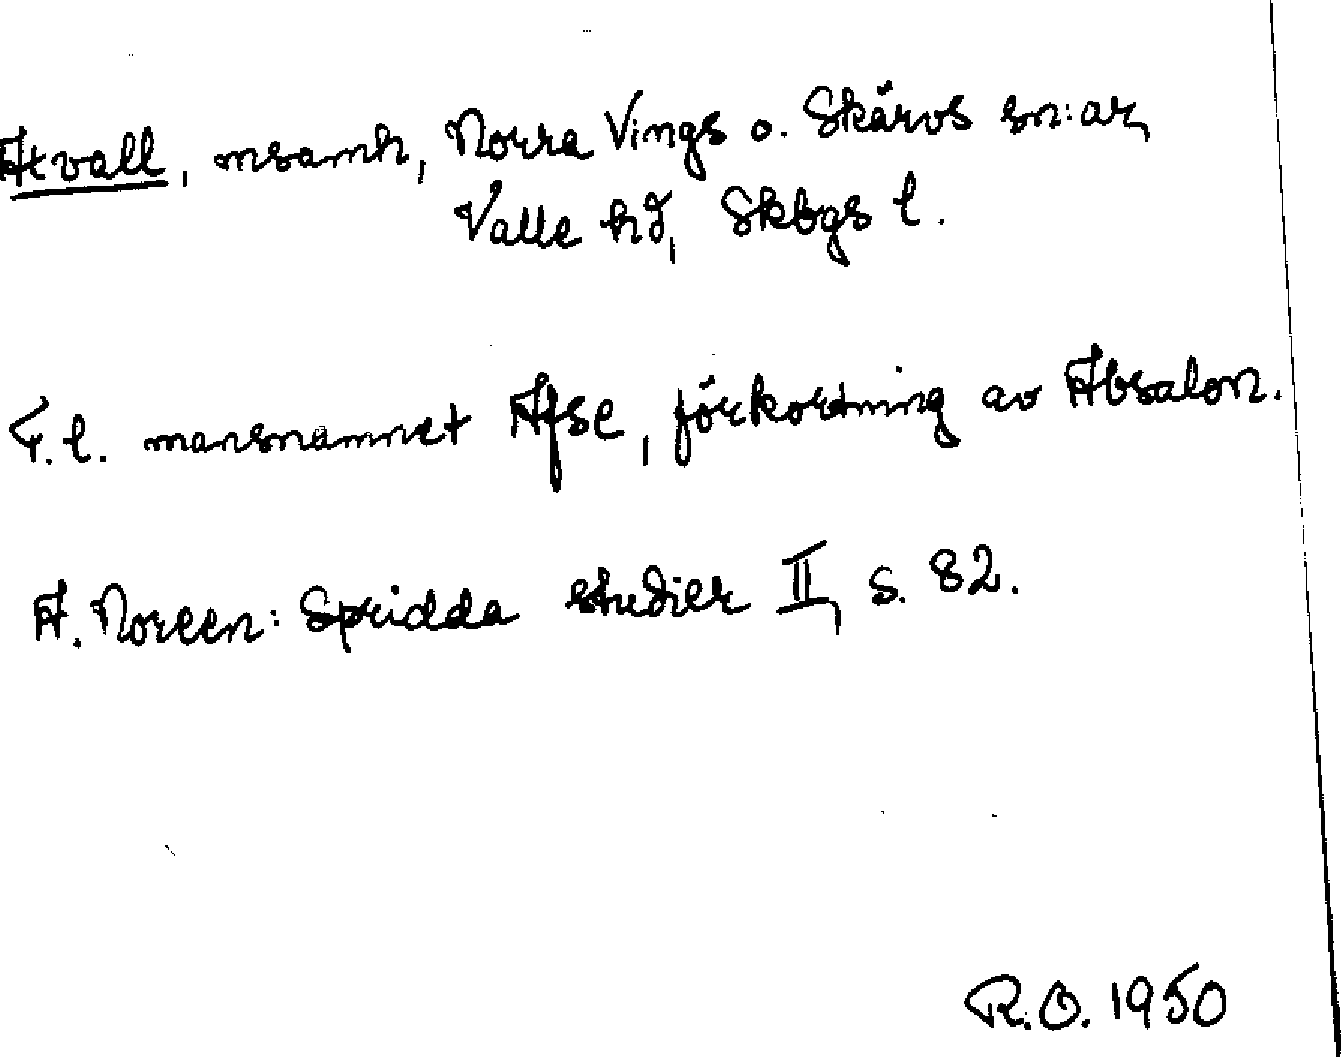 Axvall, msamh, Norra Vings o. Skärvs sn:ar,
Valle hd, Skbgs l.
F.l. mansnamnet Afse, förkortning av Absalon.
A. Noreen: Spridda studier II, s. 82.
R.O. 1950